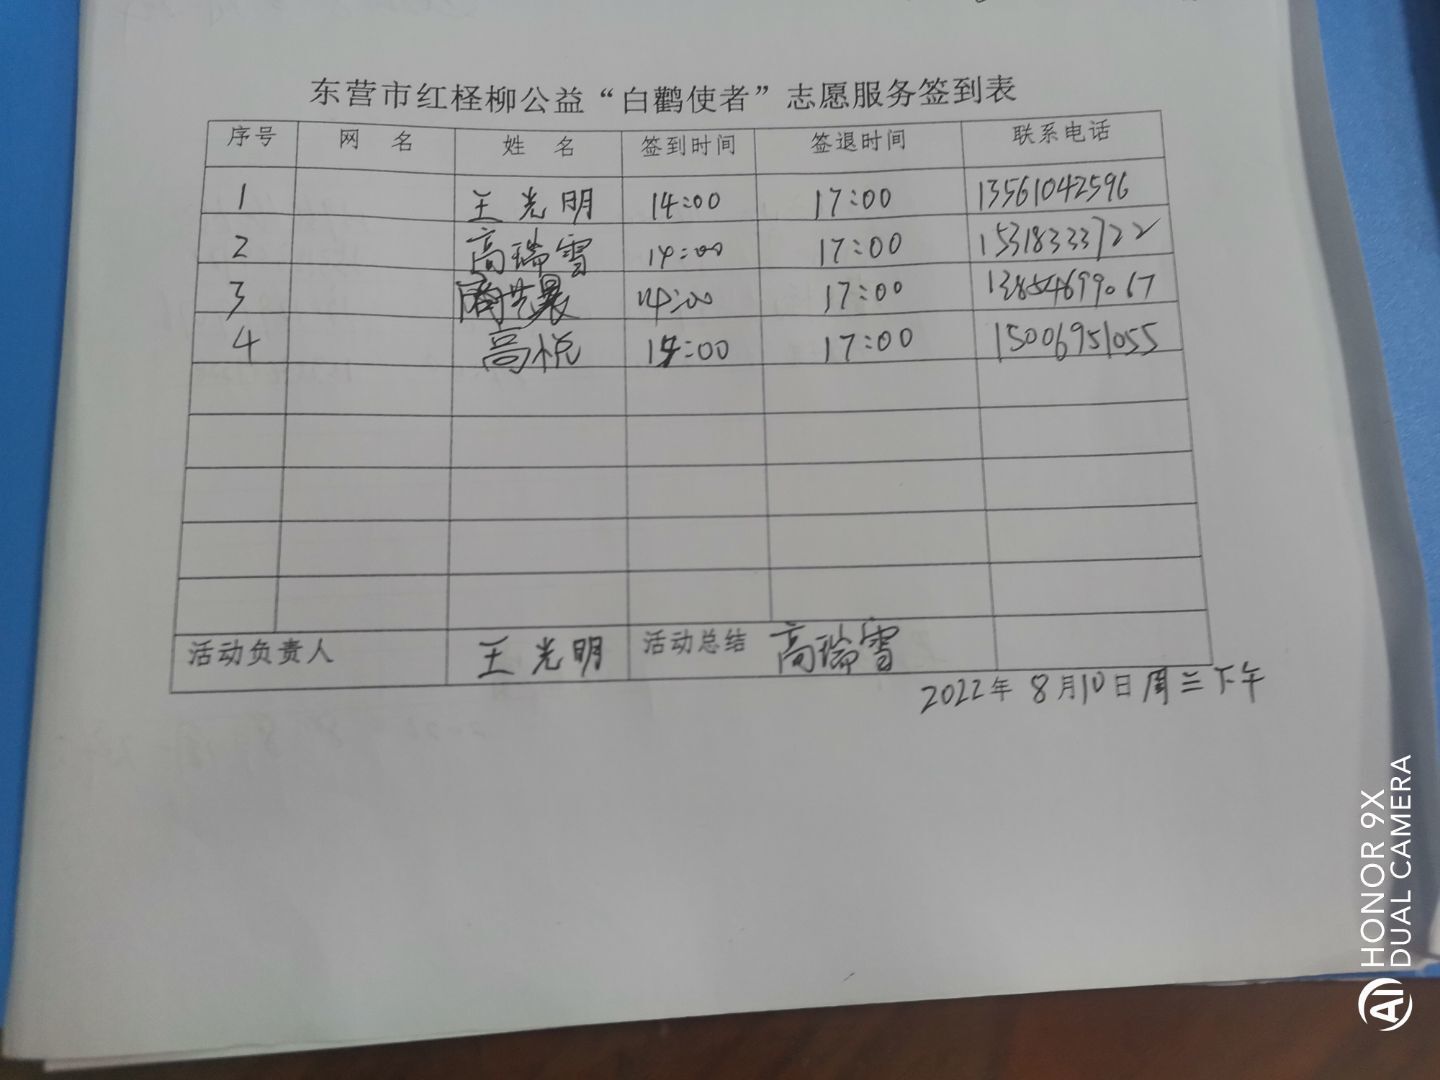 东营市红柽柳公益“白鹳使者”志愿服务签到表
序号 网 名 姓 名 签到时间 签退时间 联系电话
1 王光明 14:00 17:00 13561042596
2 高瑞雪 14:00 17:00 15318333722
3 14:00 17:00 13854699067
4 高悦 14:00 17:00 15006951055
活动负责人 王光明 活动总结 高瑞雪
2022年8月10日周三下午
HONOR 9X
DUAL CAMERA
AI